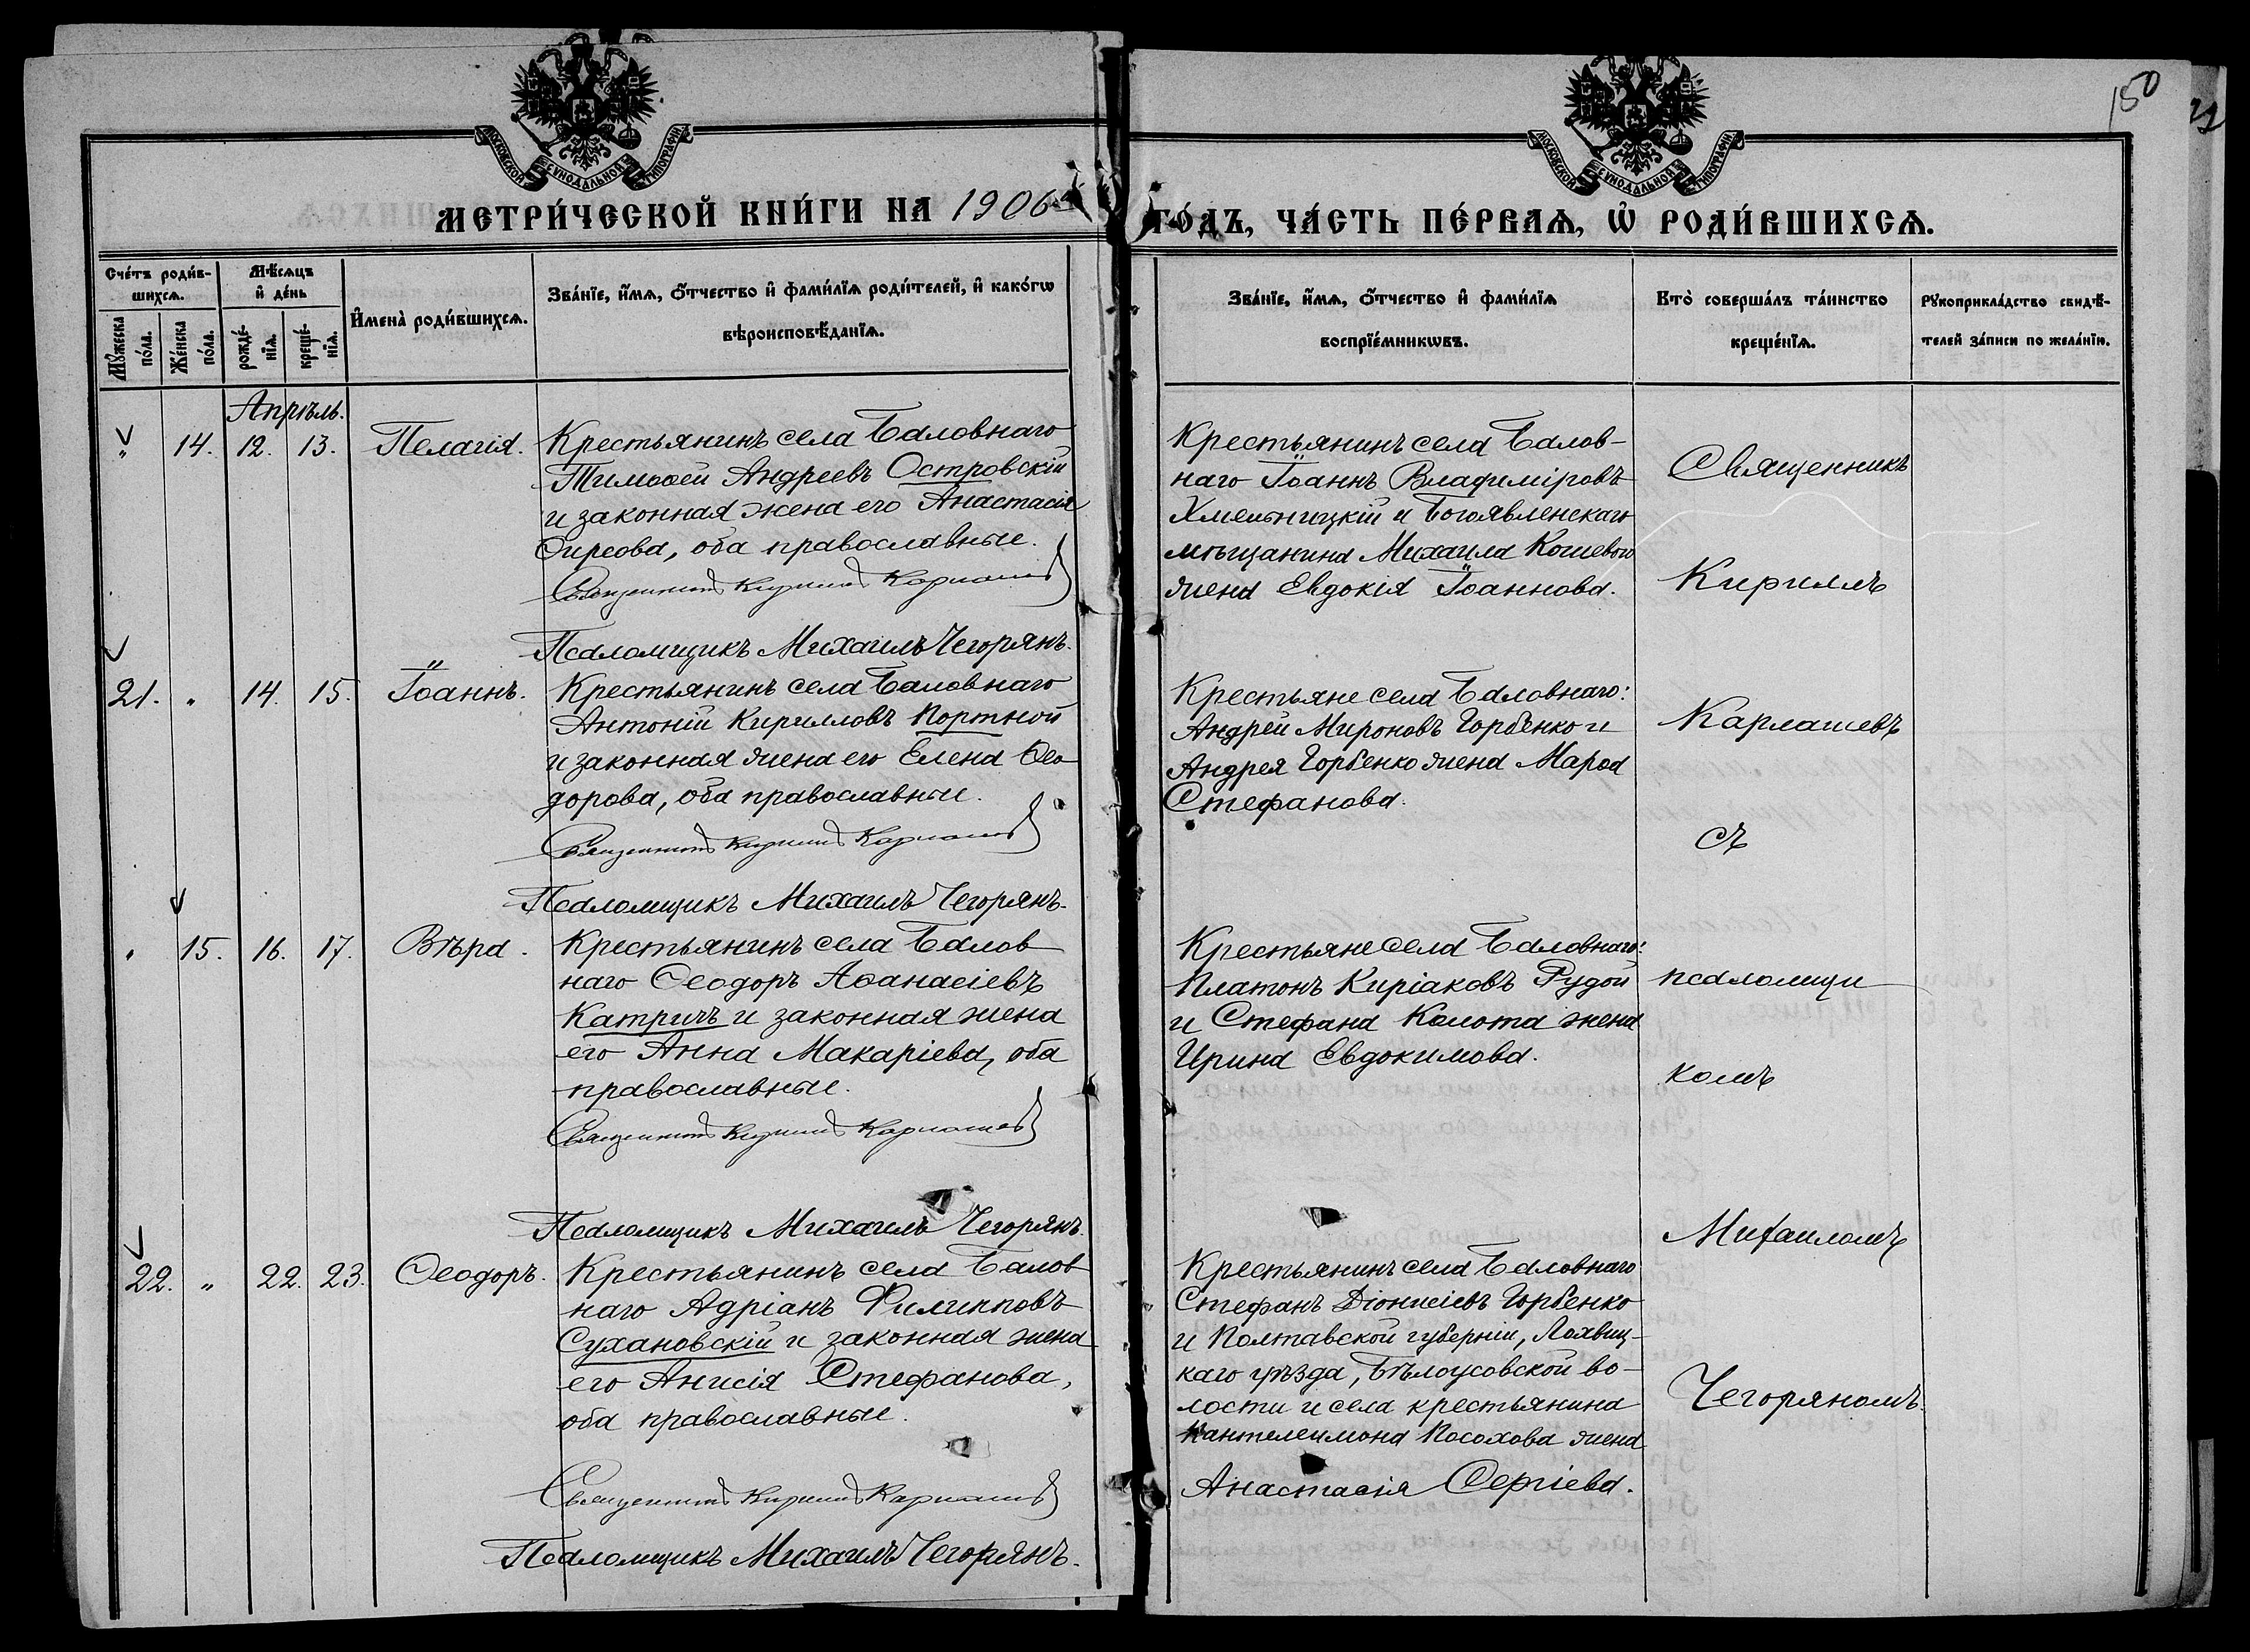 150
МОСКОВСКОЙ СУНОДАЛЬНОЙ ТИПОГРАФІИ
МОСКОВСКОЙ СУНОДАЛЬНОЙ ТИПОГРАФІИ
МЕТРИ́ЧЕСКОЙ КНИ́ГИ НА 1906
ГО́ДЪ, ЧА́СТЬ ПЕ́РВАѦ, Ѡ҆ РОДИ́ВШИХСѦ.
Сче́тъ роди́в-
шихсѧ.
Мꙋ́жеска по́ла.
Же́нска по́ла.
Мѣ́сѧцъ
и҆ де́нь
рожде́-нїѧ.
креще́-нїѧ.
И҆мена̀ роди́вшихсѧ.
Зва́нїе, и҆́мѧ, ѻ҆́тчество и҆ фами́лїѧ роди́телей, и҆ како́гѡ
вѣроисповѣ́данїѧ.
Зва́нїе, и҆́мѧ, ѻ҆́тчество и҆ фами́лїѧ
воспрїе́мникѡвъ.
Кто̀ соверша́лъ та́инство
креще́нїѧ.
Рꙋкоприкла́дство свидѣ́-
телей за́писи по жела́нїю.
Апрѣль.
" 14. 12. 13. Пелагія.
Крестьянинъ села Баловнаго
Тимоѳей Андреевъ Островскій
и законная жена его Анастасія
Ѳирсова, оба православные.
Священникъ Кириллъ Карпашевъ
Псаломщикъ Михаилъ Чегорянъ.
Крестьянинъ села Балов-
наго Іоаннъ Владиміровъ
Хмельницкій и Богоявленскаго
мѣщанина Михаила Кошевого
жена Евдокія Іоаннова.
21. " 14. 15. Іоаннъ.
Крестьянинъ села Баловнаго
Антоній Кирилловъ Портной
и законная жена его Елена Ѳео
дорова, оба православные.
Священникъ Кириллъ Карпашевъ
Псаломщикъ Михаилъ Чегорянъ.
Крестьяне села Баловнаго:
Андрей Мироновъ Горбенко и
Андрея Горбенко жена Марѳа
Стефанова.
" 15. 16. 17. Вѣра.
Крестьянинъ села Балов
наго Ѳеодоръ Аѳанасіевъ
Катричъ и законная жена
его Анна Макаріева, оба
православные.
Священникъ Кириллъ Карпашевъ
Псаломщикъ Михаилъ Чегорянъ.
Крестьяне села Баловнаго:
Платонъ Киріаковъ Рудой
и Стефана Колота жена
Ирина Евдокимова.
22. " 22. 23. Ѳеодоръ.
Крестьянинъ села Балов
наго Адріанъ Филипповъ
Сухановскій и законная жена
его Анисія Стефанова,
оба православные.
Священникъ Кириллъ Карпашевъ
Псаломщикъ Михаилъ Чегорянъ.
Крестьянинъ села Баловнаго
Стефанъ Діонисіевъ Горбенко
и Полтавской губерніи, Лохвиц-
каго уѣзда, Бѣлоусовской во-
лости и села крестьянина
Пантелеимона Посохова жена
Анастасія Сергіева.
Священникъ
Кириллъ
Карпашевъ
съ
псаломщи
комъ
Михаиломъ
Чегоряномъ.